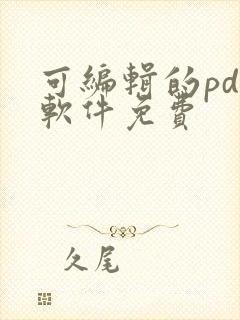 可编辑的pd
軟件免費
久尾